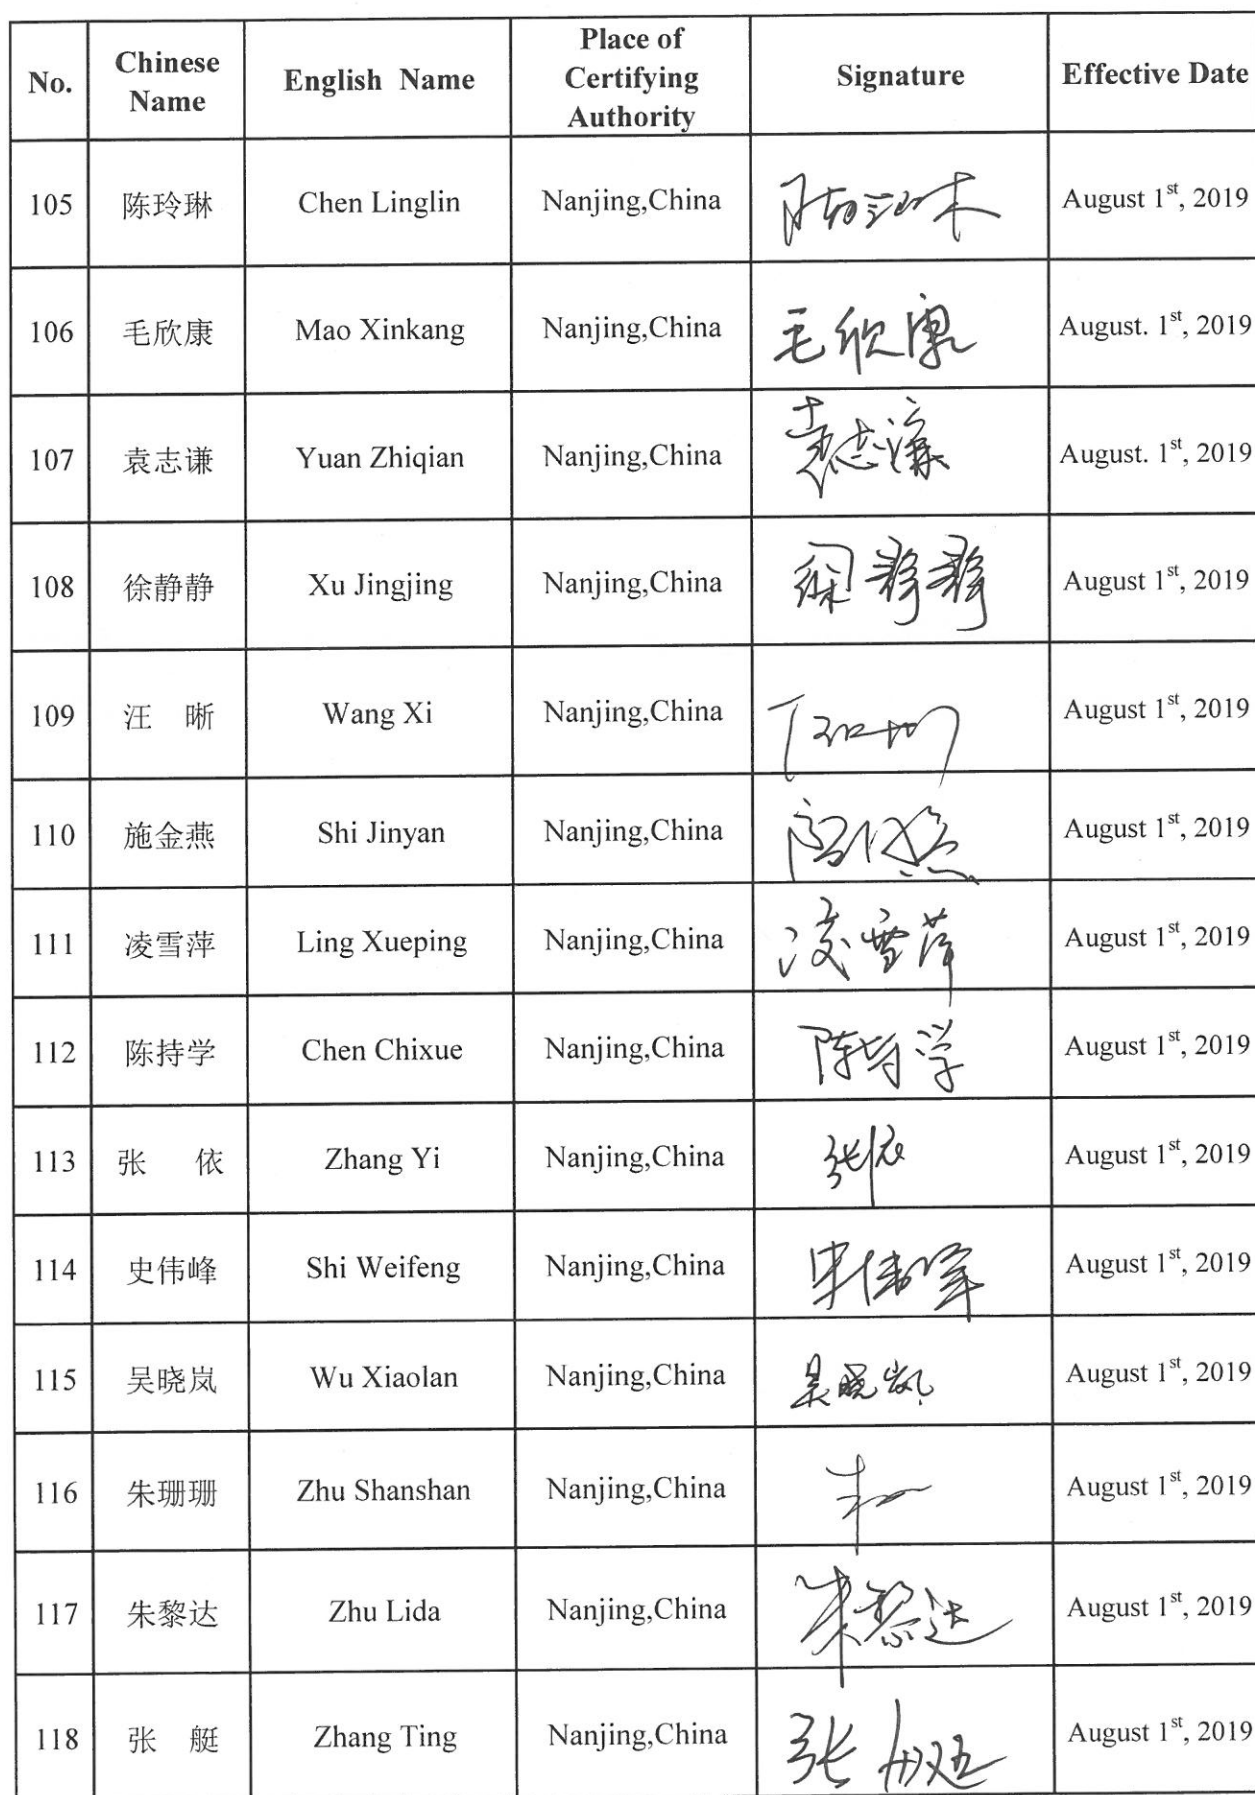 No. Chinese Name English Name Place of Certifying Authority Signature Effective Date
105 陈玲琳 Chen Linglin Nanjing,China August 1st, 2019
106 毛欣康 Mao Xinkang Nanjing,China 毛欣康 August. 1st, 2019
107 袁志谦 Yuan Zhiqian Nanjing,China 袁志谦 August. 1st, 2019
108 徐静静 Xu Jingjing Nanjing,China August 1st, 2019
109 汪 晰 Wang Xi Nanjing,China August 1st, 2019
110 施金燕 Shi Jinyan Nanjing,China August 1st, 2019
111 凌雪萍 Ling Xueping Nanjing,China 凌雪萍 August 1st, 2019
112 陈持学 Chen Chixue Nanjing,China 陈持学 August 1st, 2019
113 张 依 Zhang Yi Nanjing,China 张依 August 1st, 2019
114 史伟峰 Shi Weifeng Nanjing,China 史伟峰 August 1st, 2019
115 吴晓岚 Wu Xiaolan Nanjing,China 吴晓岚 August 1st, 2019
116 朱珊珊 Zhu Shanshan Nanjing,China August 1st, 2019
117 朱黎达 Zhu Lida Nanjing,China 朱黎达 August 1st, 2019
118 张 艇 Zhang Ting Nanjing,China 张艇 August 1st, 2019